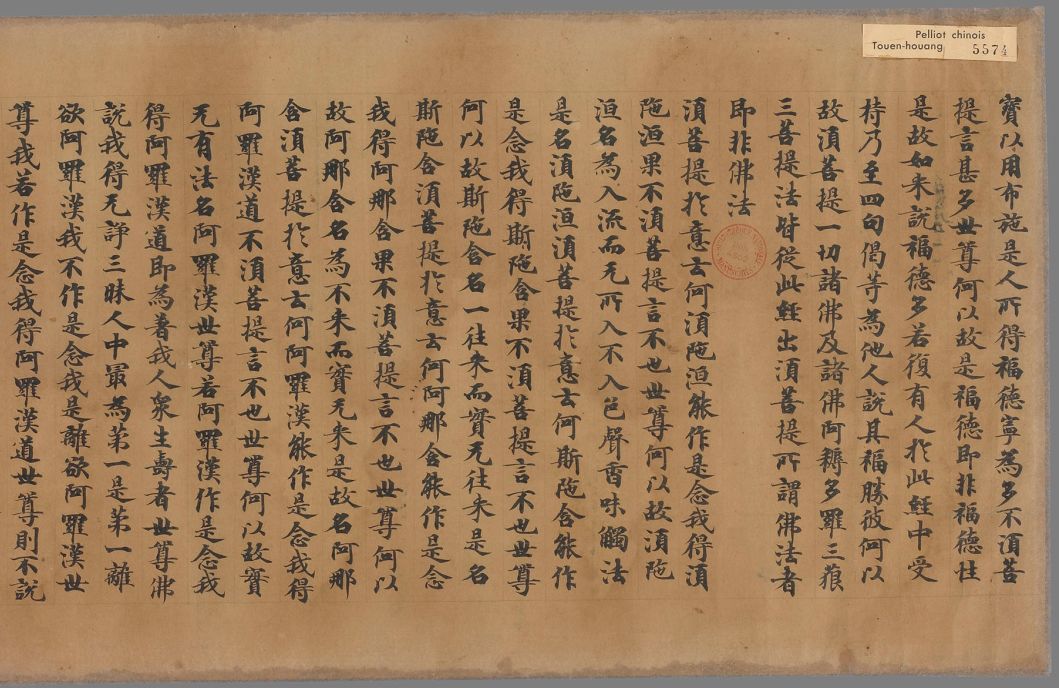 Pelliot chinois
Touen-houang 5574
寳以用布施是人所得福德寧為多不湏菩
提言甚多世尊何以故是福德即非福德性
是故如来說福德多若復有人於此經中受
持乃至四句偈等為他人說其福勝彼何以
故湏菩提一切諸佛及諸佛阿耨多羅三藐
三菩提法皆從此經出湏菩提所謂佛法者
即非佛法
湏菩提於意云何湏陁洹能作是念我得湏
陁洹果不湏菩提言不也世尊何以故湏陁
洹名為入流而无所入不入色聲香味觸法
是名湏陁洹湏菩提於意云何斯陁含能作
是念我得斯陁含果不湏菩提言不也世尊
何以故斯陁含名一往来而實无往来是名
斯陁含湏菩提於意云何阿那含能作是念
我得阿那含果不湏菩提言不也世尊何以
故阿那含名為不来而實无来是故名阿那
含湏菩提於意云何阿羅漢能作是念我得
阿羅漢道不湏菩提言不也世尊何以故實
无有法名阿羅漢世尊若阿羅漢作是念我
得阿羅漢道即為著我人衆生壽者世尊佛
說我得无諍三昧人中㝡為第一是第一離
欲阿羅漢我不作是念我是離欲阿羅漢世
尊我若作是念我得阿羅漢道世尊則不說